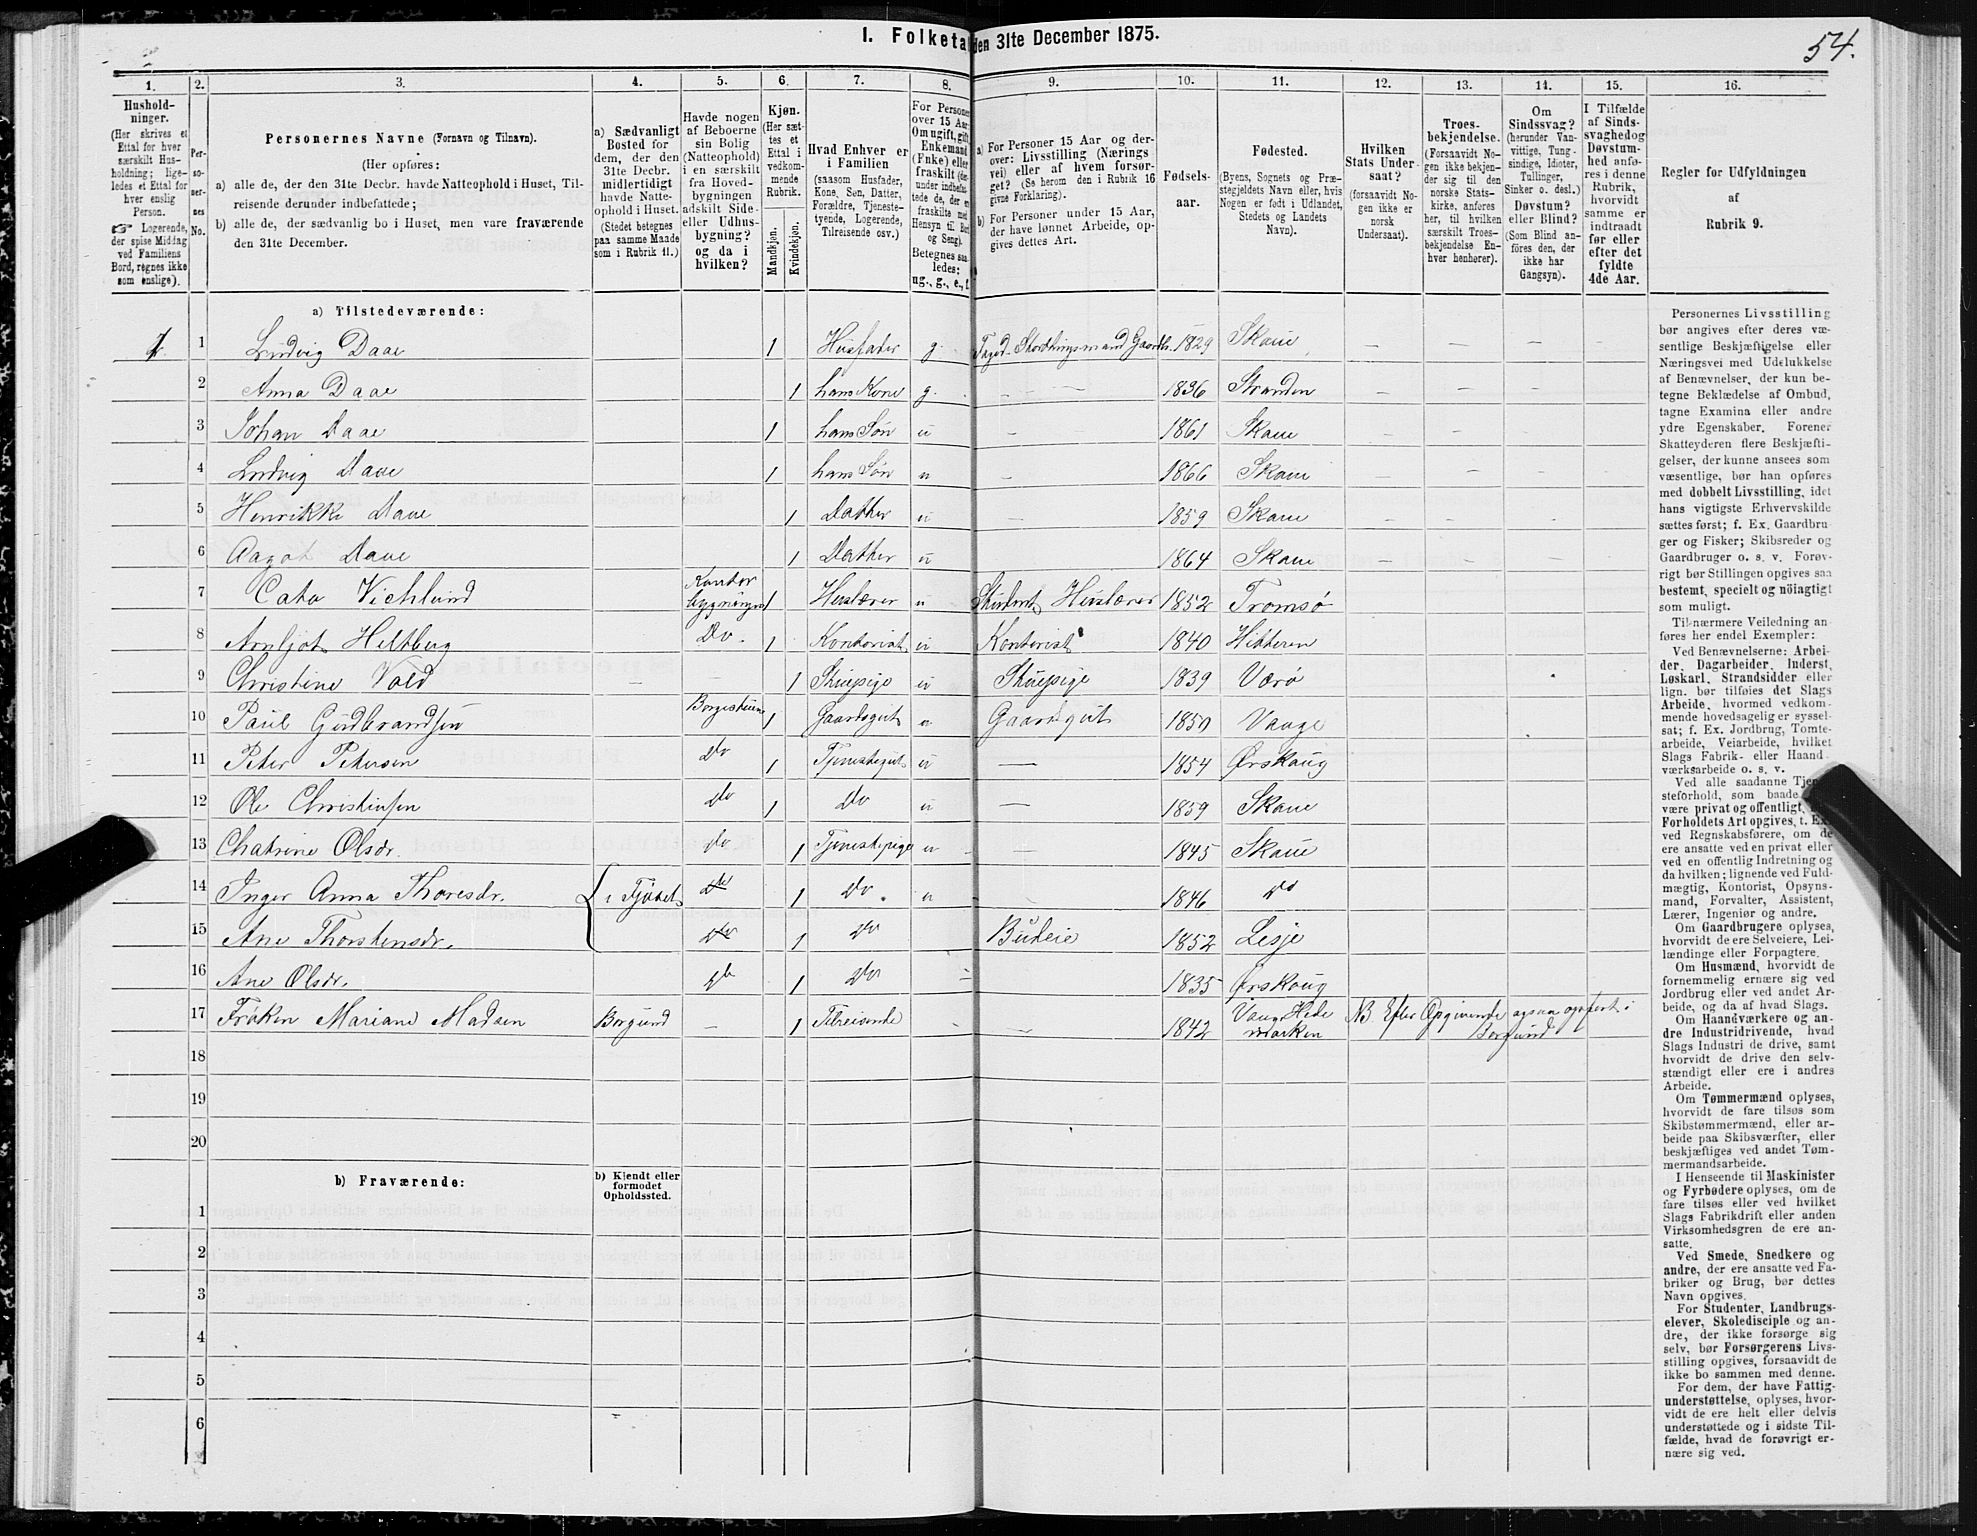 I. Folketal den 31te December 1875.
54.
1. 2. 3. 4. 5. 6. 7. 8. 9. 10. 11. 12. 13. 14. 15. 16.
Hushold-
ninger.
(Her skrives et
Ettal for hver
særskilt Hus-
holdning; lige-
ledes et Ettal for
hver enslig
Person.
☞ Logerende,
der spise Middag
ved Familiens
Bord, regnes ikke
som enslige).
Per-
so-
ner-
nes
No.
Personernes Navne (Fornavn og Tilnavn).
(Her opføres:
a) alle de, der den 31te Decbr. havde Natteophold i Huset, Til-
reisende derunder indbefattede;
b) alle de, der sædvanlig bo i Huset, men vare fraværende
den 31te December.
a) Sædvanligt
Bosted for
dem, der den
31te Decbr.
midlertidigt
havde Natte-
ophold i Huset.
(Stedet betegnes
paa samme Maade
som i Rubrik 11.)
Havde nogen
af Beboerne
sin Bolig
(Natteophold)
i en særskilt
fra Hoved-
bygningen
adskilt Side-
eller Udhus-
bygning?
og da i
hvilken?
Kjøn.
(Her sæt-
tes et
Ettal i
vedkom-
mende
Rubrik.
Mandkjøn.
Kvindekjøn.
Hvad Enhver er
i Familien
(saasom Husfader,
Kone, Søn, Datter,
Forældre, Tjeneste-
tyende, Logerende,
Tilreisende osv.)
For Personer
over 15 Aar:
Om ugift, gift,
Enkemand
(Enke) eller
fraskilt (der-
under indbefat-
tede de, der ere
fraskilte med
Hensyn til Bord
og Seng).
Betegnes saa-
ledes:
ug., g., e., f.
a) For Personer 15 Aar og der-
over: Livsstilling (Nærings
vei) eller af hvem forsør-
get? (Se herom den i Rubrik 16
givne Forklaring).
b) For Personer under 15 Aar,
der have lønnet Arbeide, op-
gives dettes Art.
Fødsels-
aar.
Fødested.
(Byens, Sognets og Præ-
stegjeldets Navn eller, hvis
Nogen er født i Udlandet,
Stedets og Landets
Navn).
Hvilken
Stats Under-
saat?
(forsaavidt No-
gen ikke er
norsk
Undersaat).
Troes-
bekjendelse.
(Forsaavidt No-
gen ikke bekjen-
der sig til den
norske Stats-
kirke, anføres
her, til hvilken
særskilt Troes-
bekjendelse En-
hver henhører).
Om
Sindssvag?
(herunder Van-
vittige, Tung-
sindige, Idioter,
Tullinger,
Sinker o. desl.)
Døvstum?
eller Blind?
(Som Blind an-
føres den, der
ikke har
Gangsyn).
I Tilfælde
af Sinds-
svaghedog
Døvstum-
hed anfø-
res i denne
Rubrik,
hvorvidt
samme er
indtraadt
før eller
efter det
fyldte
4de Aar.
Regler for Udfyldningen
af
Rubrik 9.
a) Tilstedeværende:
1 1 Ludvig Daae 1 Husfader g. Foged Storthingsmand Gaardbr. 1829 Skaue – – – –
2 Anna Daae 1 hans Kone g. – 1836 Stranden – –
3 Johan Daae 1 hans Søn u – 1861 Skaue – –
4 Ludvig Daae 1 hans Søn u – 1866 Skaue – – –
5 Henrikke Daae 1 Datter u – 1859 Skaue – – – –
6 Aagot Daae 1 Datter u 1864 Skaue – –
7 Cato Vichlund Kontor bygningen 1 Huslærer u Student Huslærer 1852 Tromsø
8 Arnljot Heltberg Do. 1 Kontorist u Kontorist 1840 Hitteren
9 Christine Vold – – 1 Stuepige u Stuepige 1839 Værø
10 Paul Gudbrandsen Borgestuen 1 Gaardsgut u Gaardsgut 1850 Vaage
11 Peter Petersen Do 1 Tjenestegut u – 1854 Ørskaug
12 Ole Christensen Do 1 Do u – 1859 Skaue
13 Chatrine Olsdr. Do 1 Tjenestepige u – 1845 Skaue
14 Inger Anna Thoresdr. i Fjøset Do 1 Do. u 1846 Do
15 Ane Thorstensdr. Do 1 Do Budeie 1852 Lesje
16 Ane Olsdr. Do 1 Do – 1835 Ørskoug
17 Frøken Mariane Madsen Borgund – 1 Tilreisende – 1842 Vang Hede marken NB Efter Opgivende ogsaa opført i Borgund
18
19
20
b) Fraværende:
b) Kjendt eller
formodet
Opholdssted.
1
2
3
4
5
6
Personernes Livsstilling
bør angives efter deres væ-
sentlige Beskjæftigelse eller
Næringsvei med Udelukkelse
af Benævnelser, der kun be-
tegne Beklædelse af Ombud,
tagne Examina eller andre
ydre Egenskaber. Forener
Skatteyderen flere Beskjæfti-
gelser, der kunne ansees som
væsentlige, bør han opføres
med dobbelt Livsstilling, idet
hans vigtigste Erhvervskilde
sættes først; f. Ex. Gaardbru-
ger og Fisker; Skibsreder og
Gaardbruger o. s. v. Forøv-
rigt bør Stillingen opgives saa
bestemt, specielt og nöiagtigt
som muligt.
Til nærmere Veiledning an-
føres her endel Exempler:
Ved Benævnelserne: Arbei-
der, Dagarbeider, Inderst,
Løskarl, Strandsidder eller
lign. bør tilføies det Slags
Arbeide, hvormed vedkom-
mende hovedsagelig er syssel-
sat; f. Ex. Jordbrug, Tomte-
arbeide, Veiarbeide, hvilket
Slags Fabrik- eller Haand-
værksarbeide o. s. v.
Ved alle saadanne Tjene-
steforhold, som baade
være privat og offentligt,
Forholdets Art opgives, t. Ex.
ved Regnskabsførere, om de
ere ansatte ved en privat eller
ved en offentlig Indretning og
da hvilken; lignende ved Fuld-
mægtig, Kontorist, Opsyns-
mand, Forvalter, Assistent,
Lærer, Ingeniør og andre.
Om Gaardbrugere oplyses,
hvorvidt de ere Selveiere, Lei-
lændinge eller Forpagtere.
Om Husmænd, hvorvidt de
fornemmelig ernære sig ved
Jordbrug eller ved andet Ar-
beide, og da af hvad Slags.
Om Haandværkere og an-
dre Industridrivende, hvad
Slags Industri de drive, samt
hvorvidt de drive den selv-
stændigt eller ere i andres
Arbeide.
Om Tømmermænd oplyses,
hvorvidt de fare tilsøs som
Skibstømmermænd, eller ar-
beide paa Skibsværfter, eller
beskjæftiges ved andet Tøm-
mermandsarbeide.
I Henseende til Maskinister
og Fyrbødere oplyses, om de
fare tilsøs eller ved hvilket
Slags Fabrikdrift eller anden
Virksomhedsgren de ere an-
satte.
Ved Smede, Snedkere og
andre, der ere ansatte ved Fa-
briker og Brug, bør dettes
Navn opgives.
For Studenter, Landbrugs-
elever, Skoledisciple og an-
dre, der ikke forsørge sig
selv, bør Forsørgerens Livs-
stilling opgives, forsaavidt de
ikke bo sammen med denne.
For dem, der have Fattig-
understøttelse, oplyses, hvor-
vidt de ere helt eller delvis
understøttede og i sidste Til-
fælde, hvad de forøvrigt er-
nære sig ved.